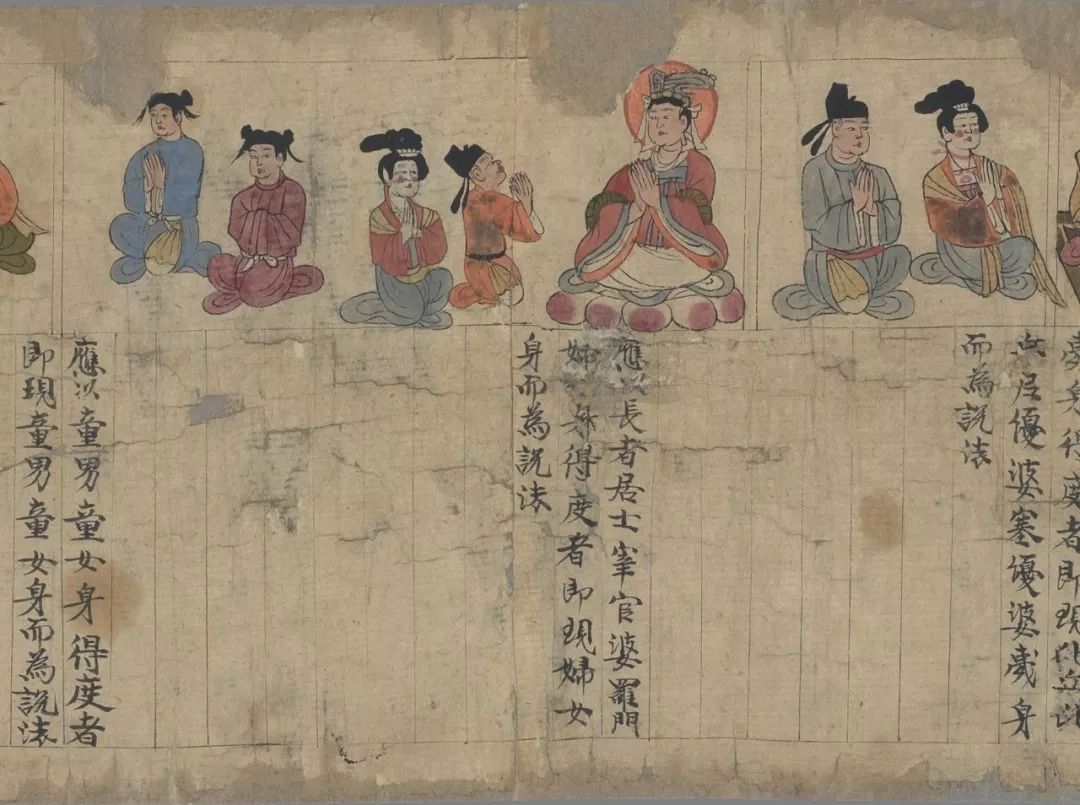 身得度者即現比丘比
丘尼優婆塞優婆夷身
而為說法
應以長者居士宰官婆羅門
婦女身得度者即現婦女
身而為說法
應以童男童女身得度者
即現童男童女身而為說法